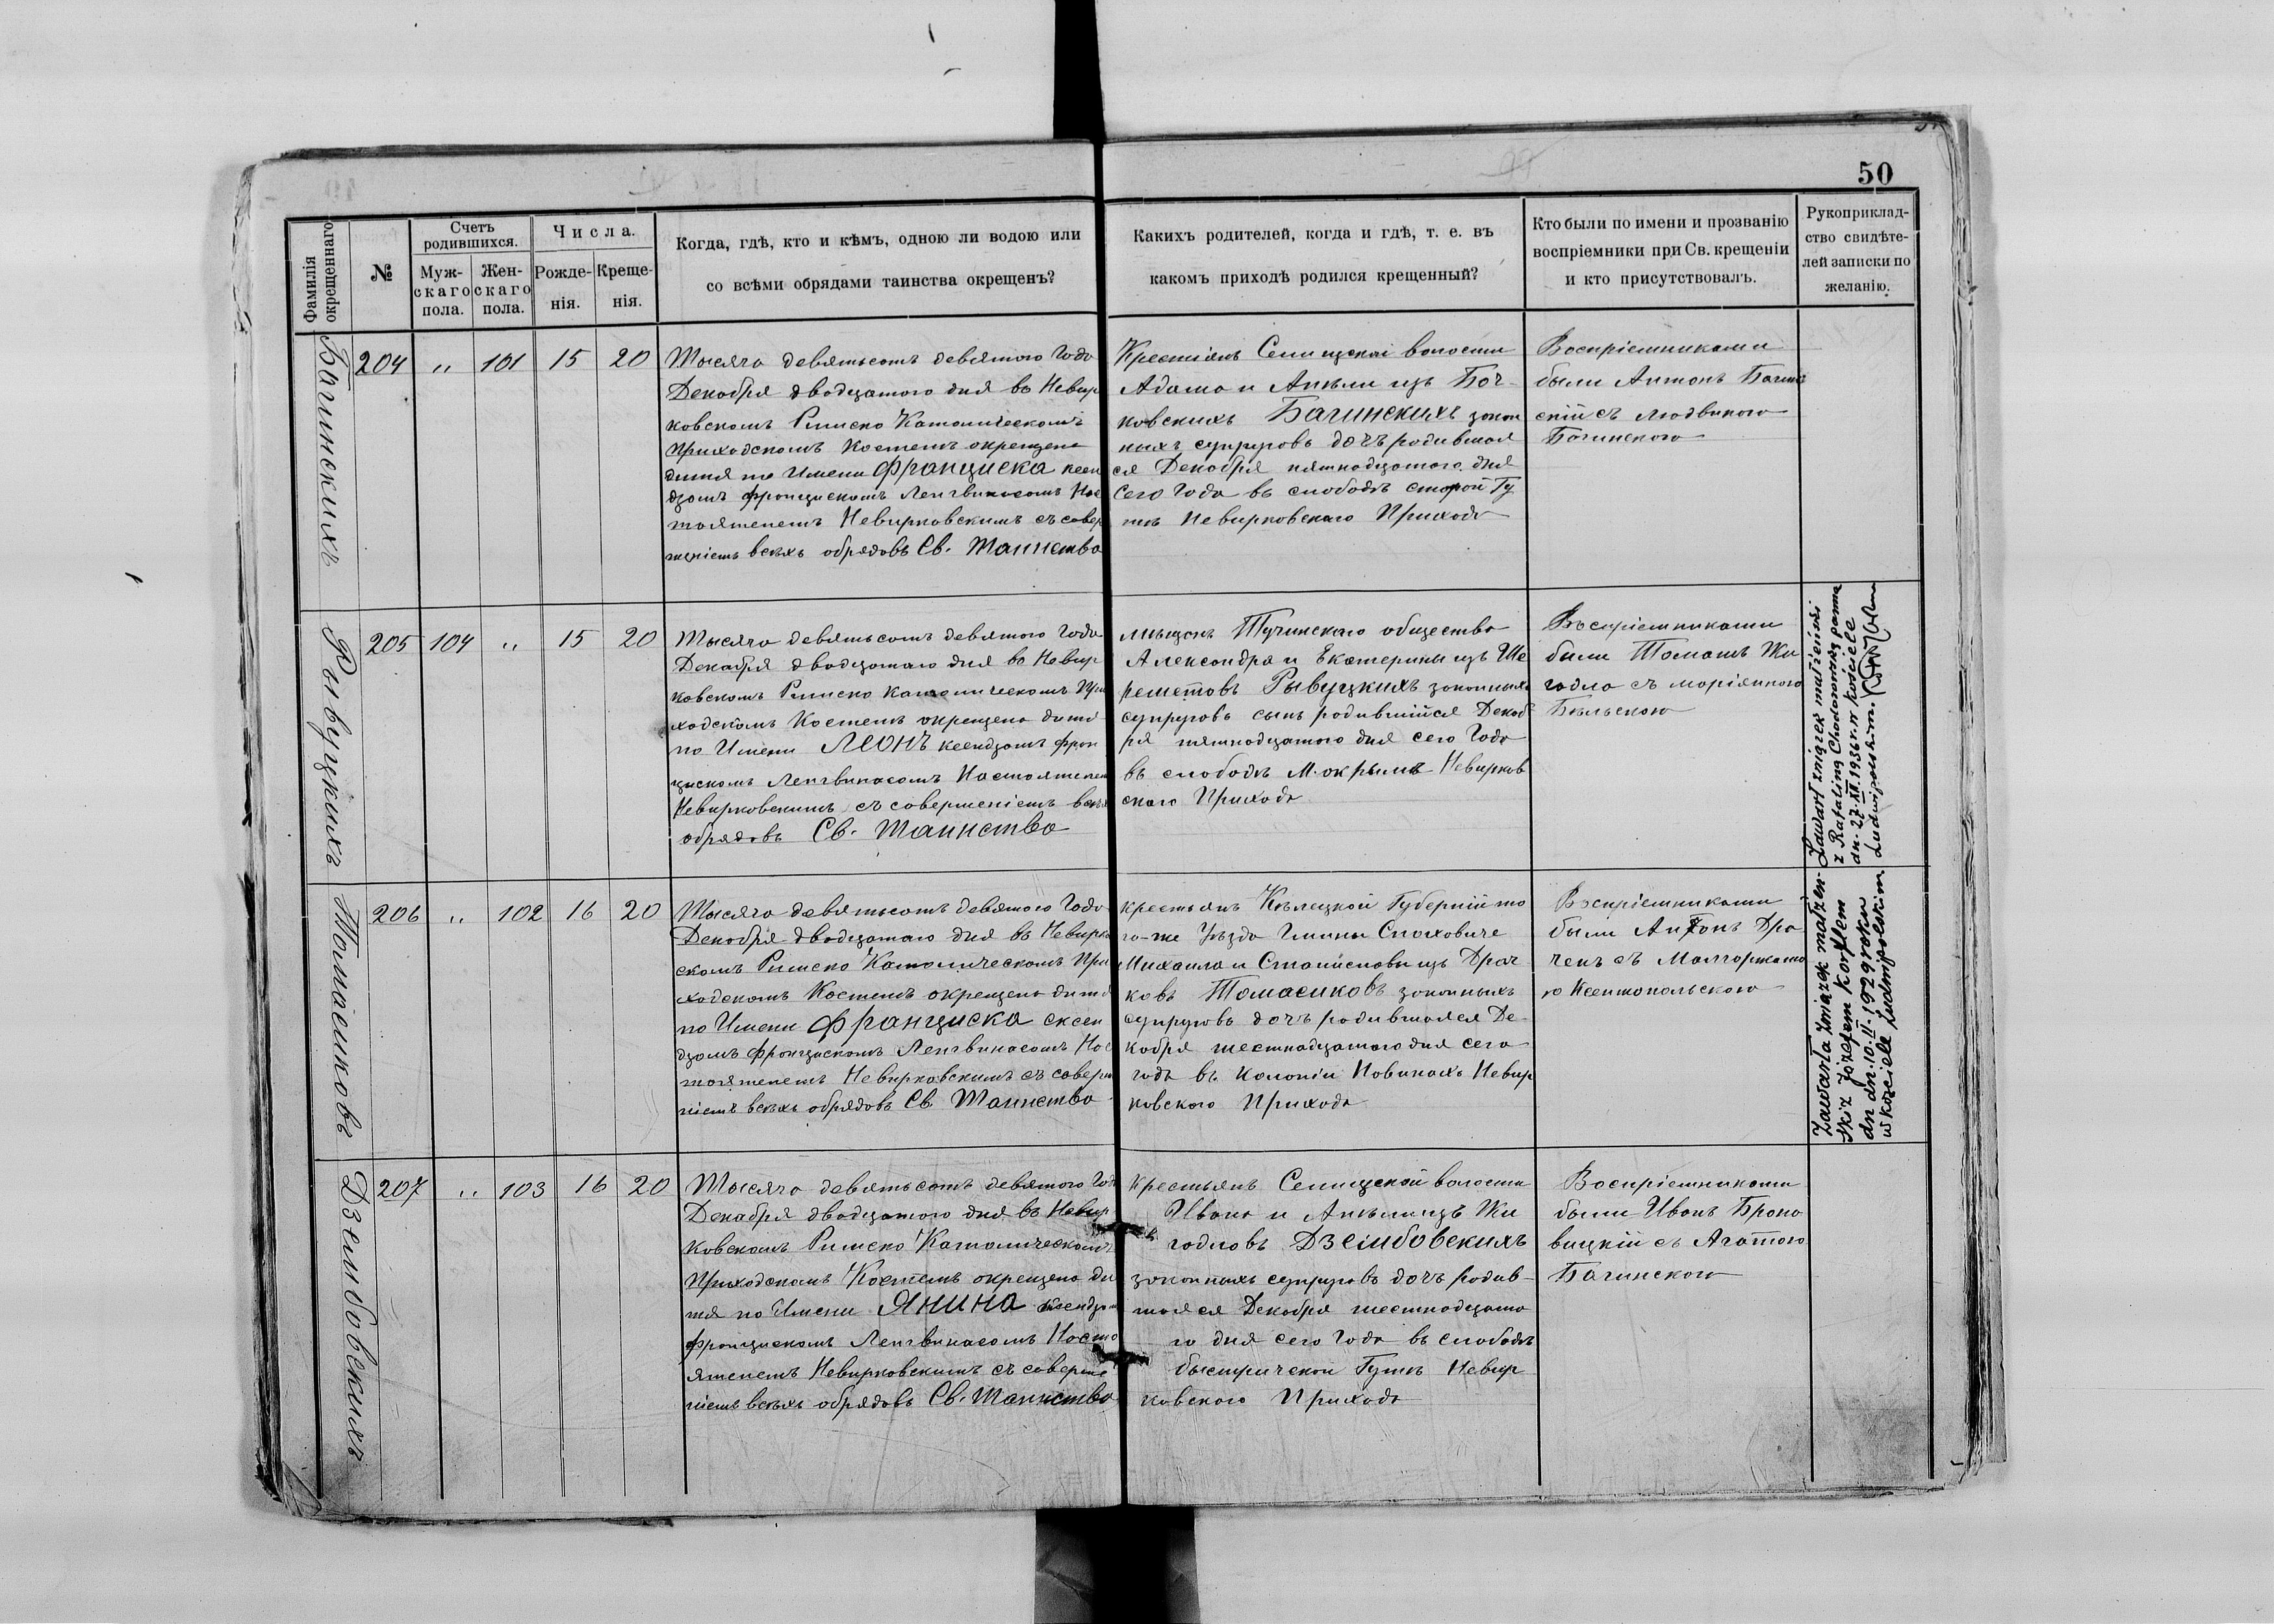 50
Фамилія окрещеннаго
№
Счетъ родившихся.
Муж-скаго пола.
Жен-скаго пола.
Числа.
Рожде-нія.
Креще-нія.
Когда, гдѣ, кто и кѣмъ, одною ли водою или
со всѣми обрядами таинства окрещенъ?
Какихъ родителей, когда и гдѣ, т. е. въ
какомъ приходѣ родился крещенный?
Кто были по имени и прозванію
воспріемники при Св. крещеніи
и кто присутствовалъ.
Рукоприклад-
ство свидѣте-
лей записки по
желанію.
Багинскихъ
204 " 101 15 20
Тысяча девятьсотъ девятого Года
Декабря двадцатого дня въ Невир
ковскомъ Римско Католическомъ
Приходскомъ Костелѣ окрещена
дитя по Имени Франциска ксен
дзомъ Францискомъ Ленгвинасомъ Нас
тоятелемъ Невирковскимъ съ совер
шеніемъ всѣхъ обрядовъ Св. Таинства
Крестіянъ Селищской волости
Адама и Анѣли изъ Боч-
ковскихъ Багинскихъ закон
ныхъ супруговъ дочъ родившая
ся Декабря пятнадцатого дня
Сего Года въ слободѣ старой Гу
тѣ Невирковскаго Прихода
Воспріемниками
были Антонъ Багин
скій съ Людвикою
Багинскою
Рывуцкихъ
205 104 " 15 20
Тысяча девятьсотъ девятого Года
Декабря двадцатаго дня въ Невир
ковскомъ Римско Католическомъ При
ходскомъ Костелѣ окрещена дитя
по Имени Леонъ ксендзомъ Фран
цискомъ Ленгвинасомъ Настоятелем
Невирковскимъ съ совершеніемъ всѣхъ
обрядовъ Св. Таинства
мѣщанъ Тучинскаго общества
Александра и Екатерины изъ Ше
реметовъ Рывуцкихъ законныхъ
супруговъ сынъ родившійся Декаб
ря пятнадцатого дня сего Года
въ слободѣ Мокрымъ Невирков
скаго Прихода
Воспріемниками
были Томашъ Жи
годло съ Маріянною
Бѣльскою
Zawarł związek małżeński
z Rafaliną Chodorowską panna
dn. 27.XII.1936 r. w kościele
Ludwipolskim.
Томасиковъ
206 " 102 16 20
Тысяча девятьсотъ девятого Года
Декабря двадцатаго дня въ Невирков
скомъ Римско Католическомъ При
ходскомъ Костелѣ окрещена дитя
по Имени Франциска ксен
дзомъ Францискомъ Ленгвинасомъ Нас
тоятелемъ Невирковскимъ съ соверше
ніемъ всѣхъ обрядовъ Св. Таинства
крестьянъ Кѣлецкой Губерніи то
го-же Уѣзда Гмины
Михаила и Станиславы изъ Драч
ковъ Томасиковъ законныхъ
супруговъ дочъ родившаяся Де-
кабря шестнадцатаго дня сего
года въ Колоніи Новинахъ Невир
ковского Прихода
Воспріемниками
были Антонъ Дра
чекъ съ Малгоржато
ю Ксентопольскою
Zawarła związek małżeń-
ski z Józefem Korflem
dn dn. 10.II.1929 roku
w kościele Ludwipolskim
Дзембовскихъ
207 " 103 16 20
Тысяча девятьсотъ девятого Года
Декабря двадцатого дня въ Невир
ковскомъ Римско Католическомъ
Приходскомъ Костелѣ окрещена ди
тя по Имени Янина ксендзом
Францискомъ Ленгвинасомъ Насто
ятелемъ Невирковскимъ съ соверше
ніемъ всѣхъ обрядовъ Св. Таинства
крестьянъ Селищской волости
Ивана и Анѣли изъ Жи
годловъ Дзембовскихъ
законныхъ супруговъ дочъ родив-
шаяся Декабря шестнадцато
го дня сего Года въ слободѣ
быстричской Гуткѣ Невир
ковского Прихода
Воспріемниками
были Иванъ Броно
вицкій съ Агатою
Багинскою